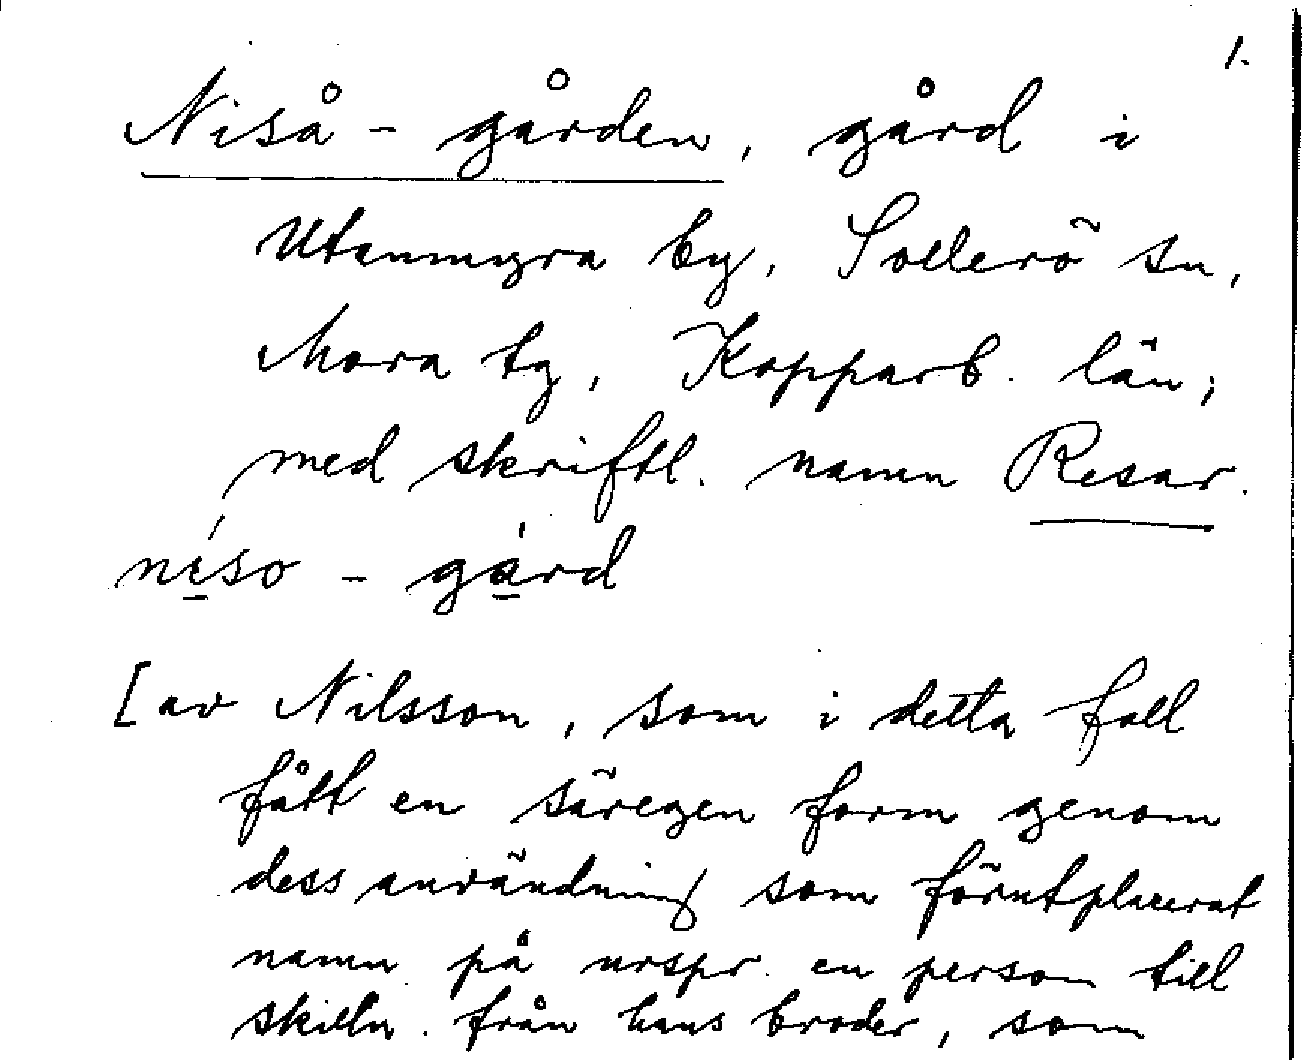 1.
Niså-gården, gård i
Utanmyra by, Sollerö sn,
Mora tg, Kopparb. län;
med skriftl. namn Resar.
níso - gård
[av Nilsson, som i detta fall
fått en säregen form genom
dess användning som förutplacerat
namn på urspr. en person till
skilln. från hans broder, som